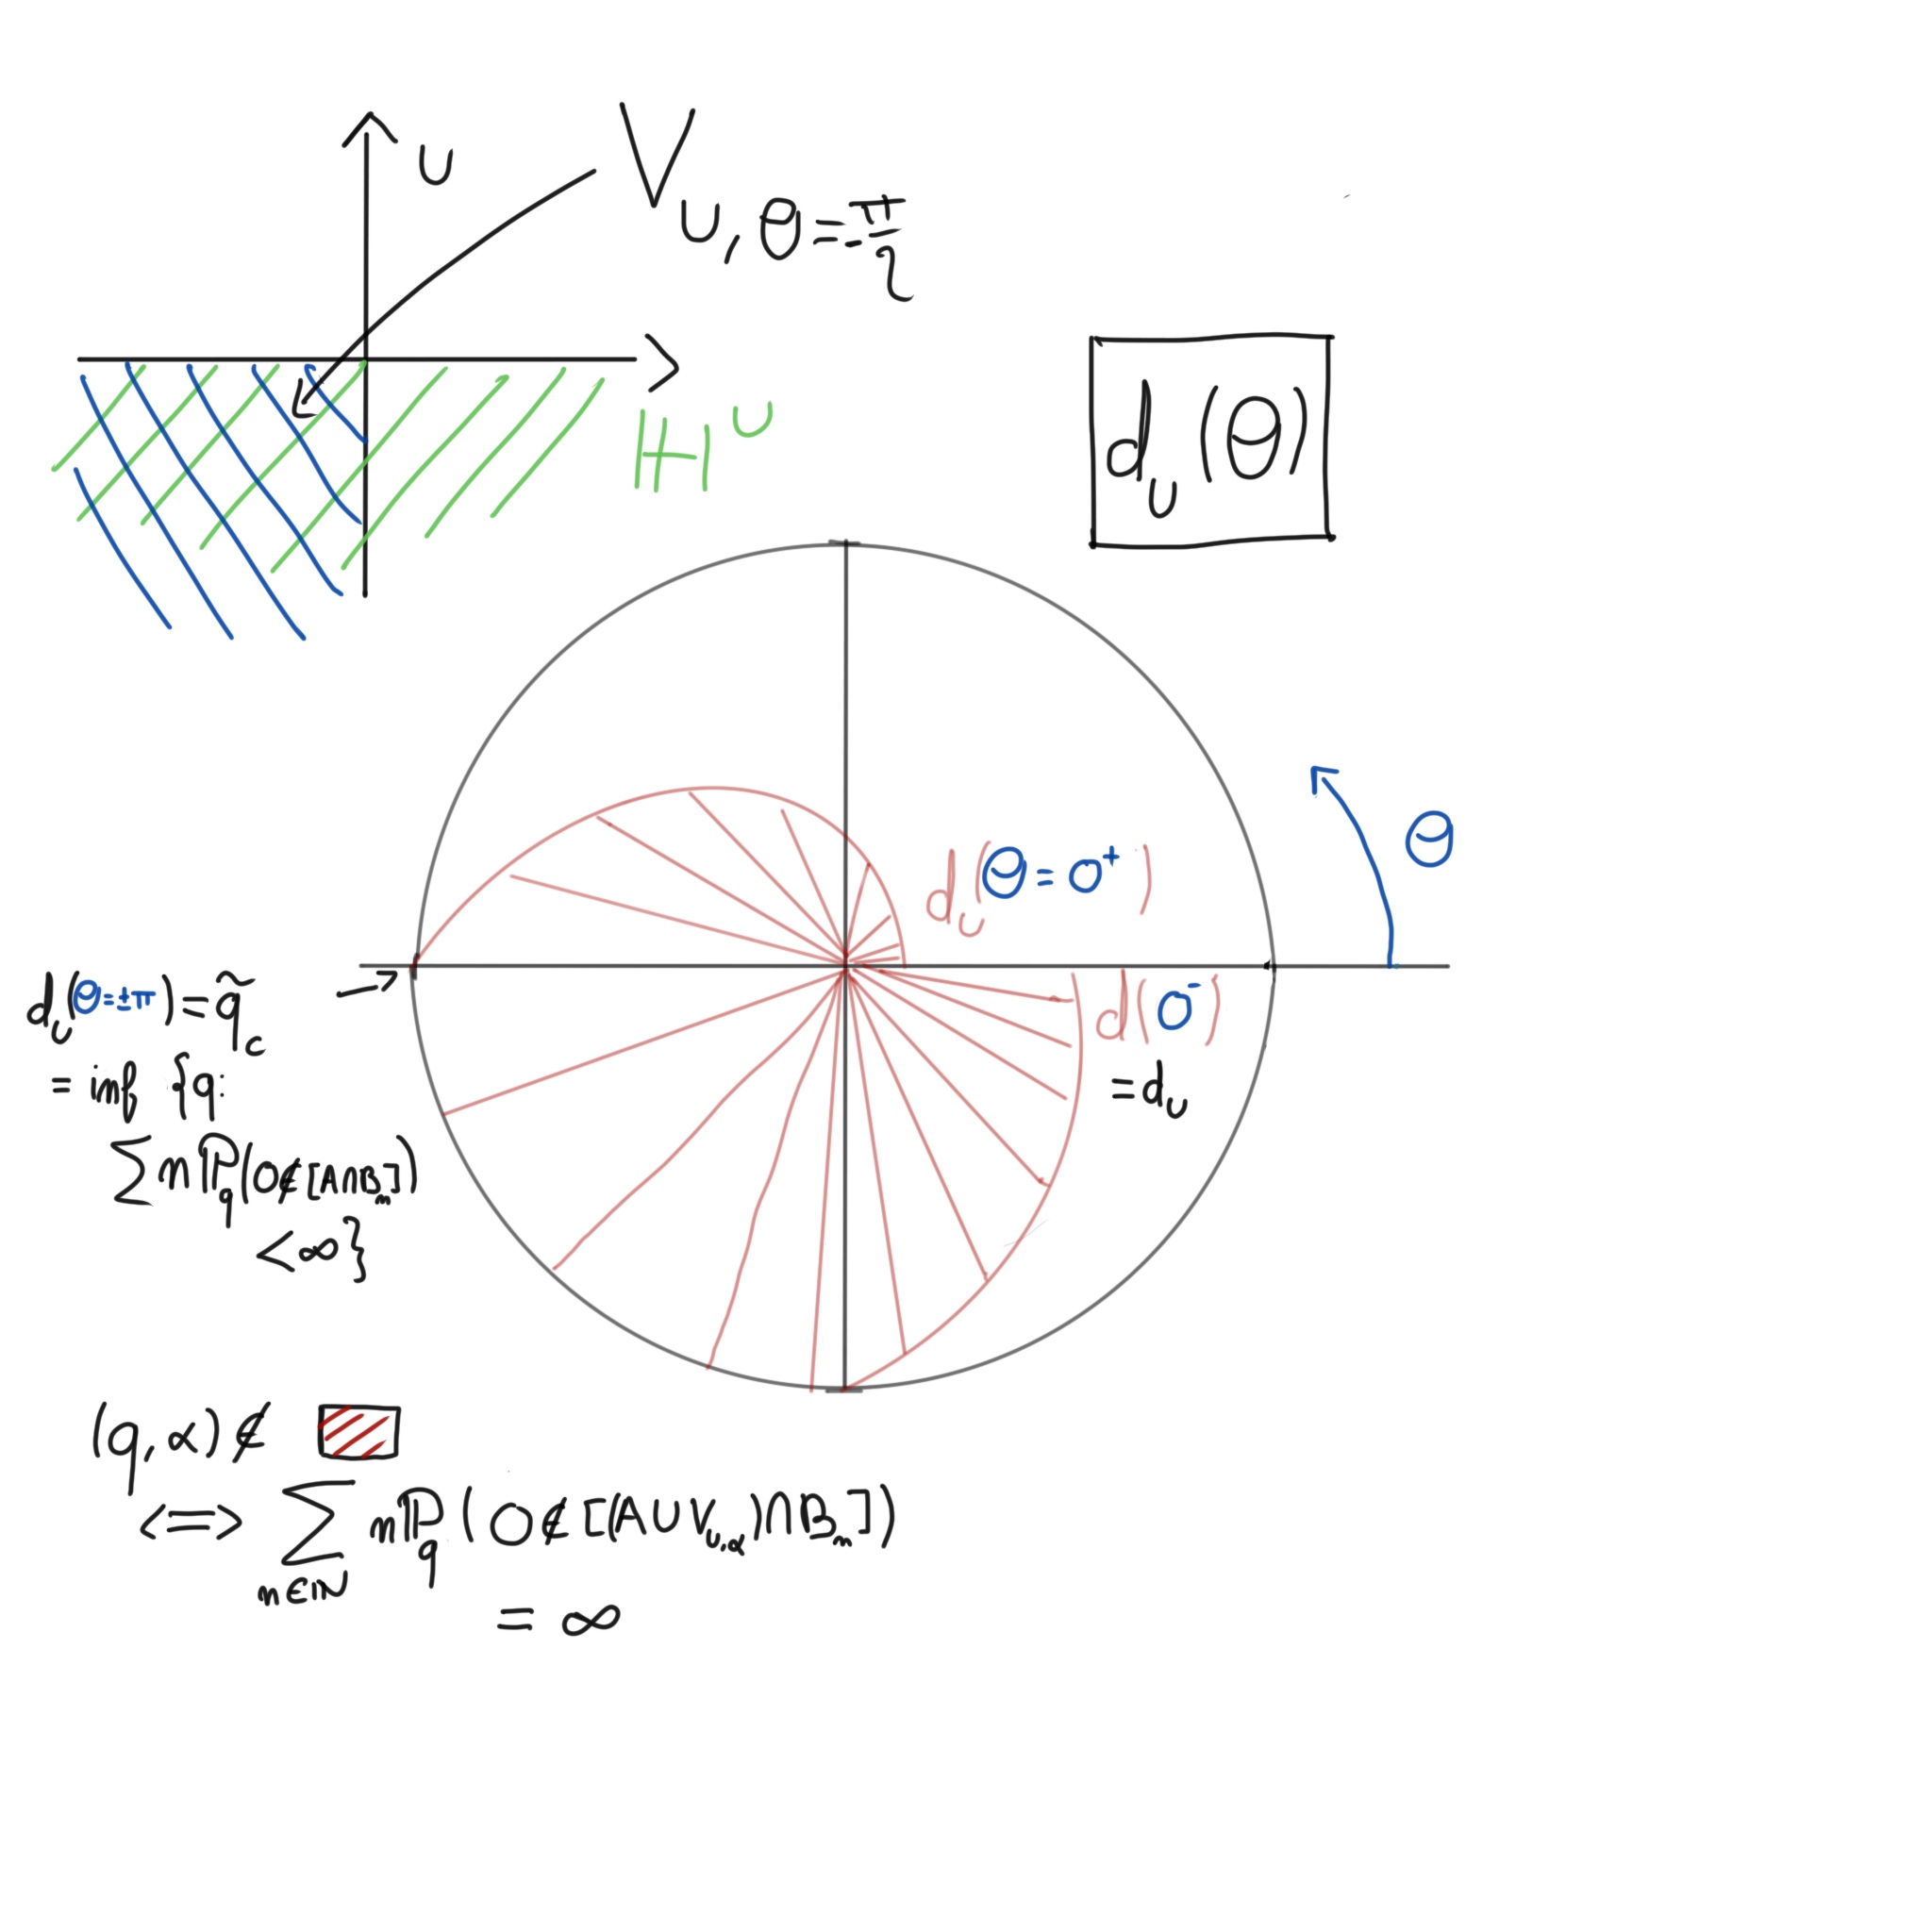 u
V_{u, θ=-π/2}
ℍ^u
d_u(θ)
θ
d_u(θ=0⁺)
d(0⁻)
=d_u
d_u(θ=±π)=q̃_c
= inf {q:
∑ nℙ_q(0∉[A∩B_n])
<∞}
(q,α)∉
<=> ∑_{n∈ℕ} nℙ_q(0∉[(A∪V_{u,α})∩B_n])
= ∞